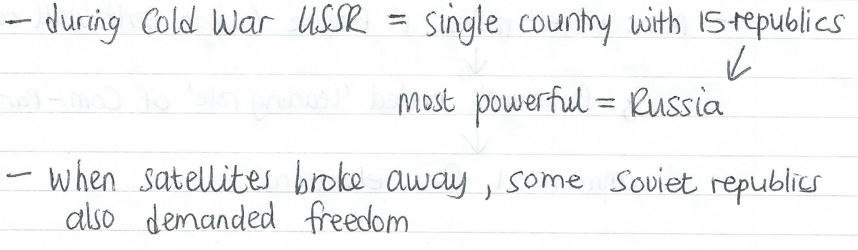 - during Cold War USSR = single country with 15 republics
↓
most powerful = Russia
- when satellites broke away, some Soviet republics
also demanded freedom